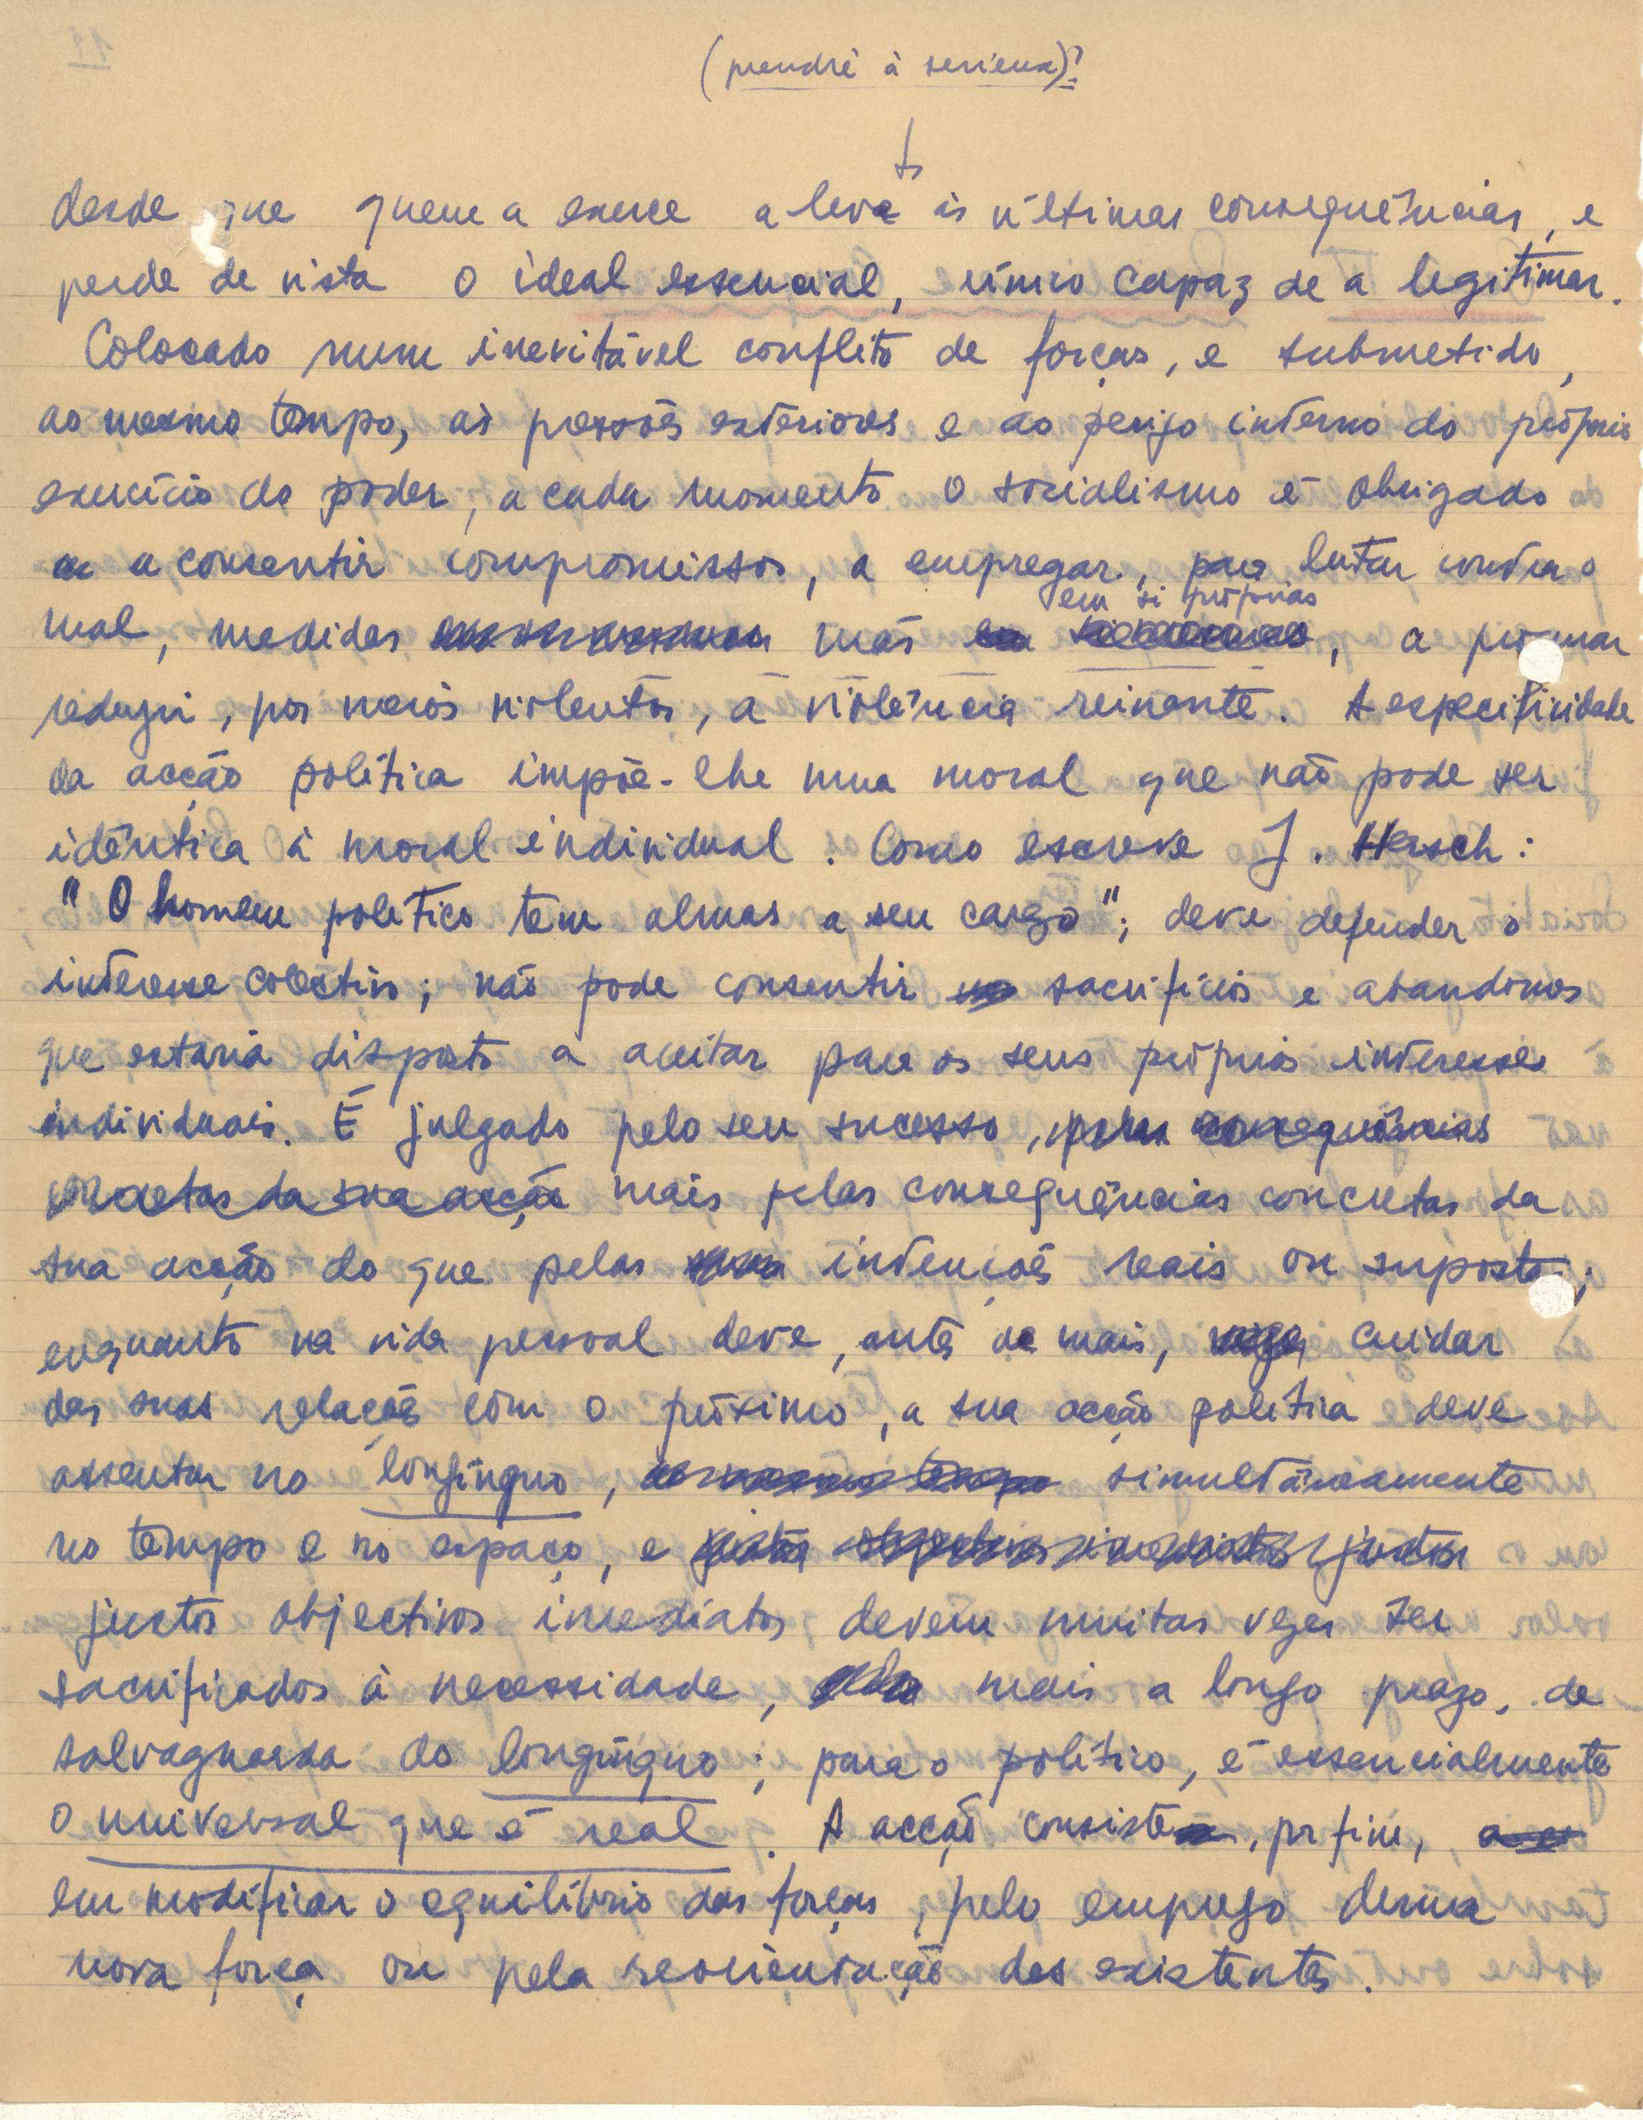 (prendre à serieux)?
desde que quem a exerce a leva às últimas consequências, e
perde de vista o ideal essencial, único capaz de a legitimar.
Colocado num inevitável conflito de forças, e submetido,
ao mesmo tempo, às pressões exteriores e ao perigo interno do próprio
exercício do poder, a cada momento o socialismo é obrigado
a consentir compromissos, a empregar, para lutar contra o
em si próprias
mal, medidas más, a procurar
reduzir, por meios violentos, a violência reinante. A especificidade
da acção política impõe-lhe uma moral que não pode ser
idêntica à moral individual. Como escreve J. Hersch:
"O homem político tem almas a seu cargo"; deve defender o
interesse colectivo; não pode consentir sacrifícios e abandonos
que estaria disposto a aceitar para os seus próprios interesses
individuais. É julgado pelo seu sucesso, pelas consequências
concretas da sua acção mais pelas consequências concretas da
sua acção do que pelas intenções reais ou supostas;
enquanto na vida pessoal deve, antes de mais, cuidar
das suas relações com o próximo, a sua acção política deve
assentar no longínquo, ao mesmo tempo simultâneamente
no tempo e no espaço, e justos objectivos imediatos justos
justos objectivos imediatos devem muitas vezes ser
sacrificados à necessidade, mais a longo prazo, de
salvaguarda do longínquo; para o político, é essencialmente
o universal que é real. A acção consiste, por fim,
em modificar o equilíbrio das forças, pelo emprego duma
nova força ou pela reorientação das existentes.